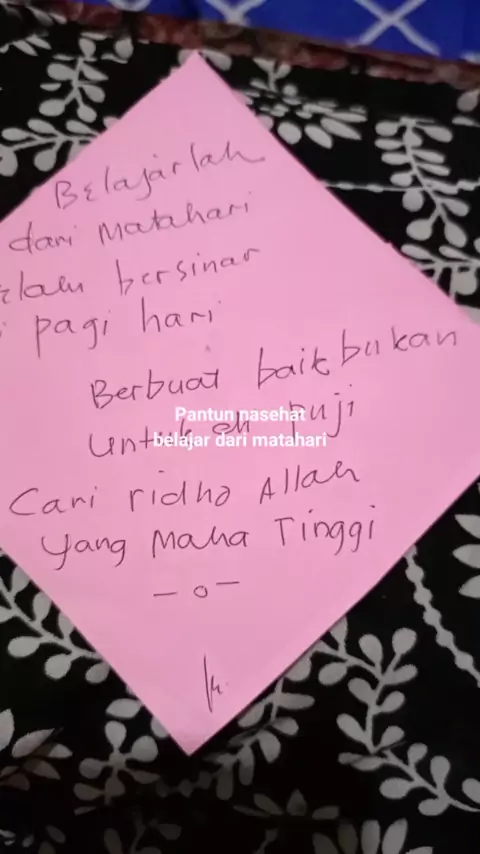 Belajarlah
dari Matahari
bersinar
pagi hari
Berbuat baik bukan
puji
Cari ridho Allah
yang Maha Tinggi
- o -
Pantun nasehat
belajar dari matahari